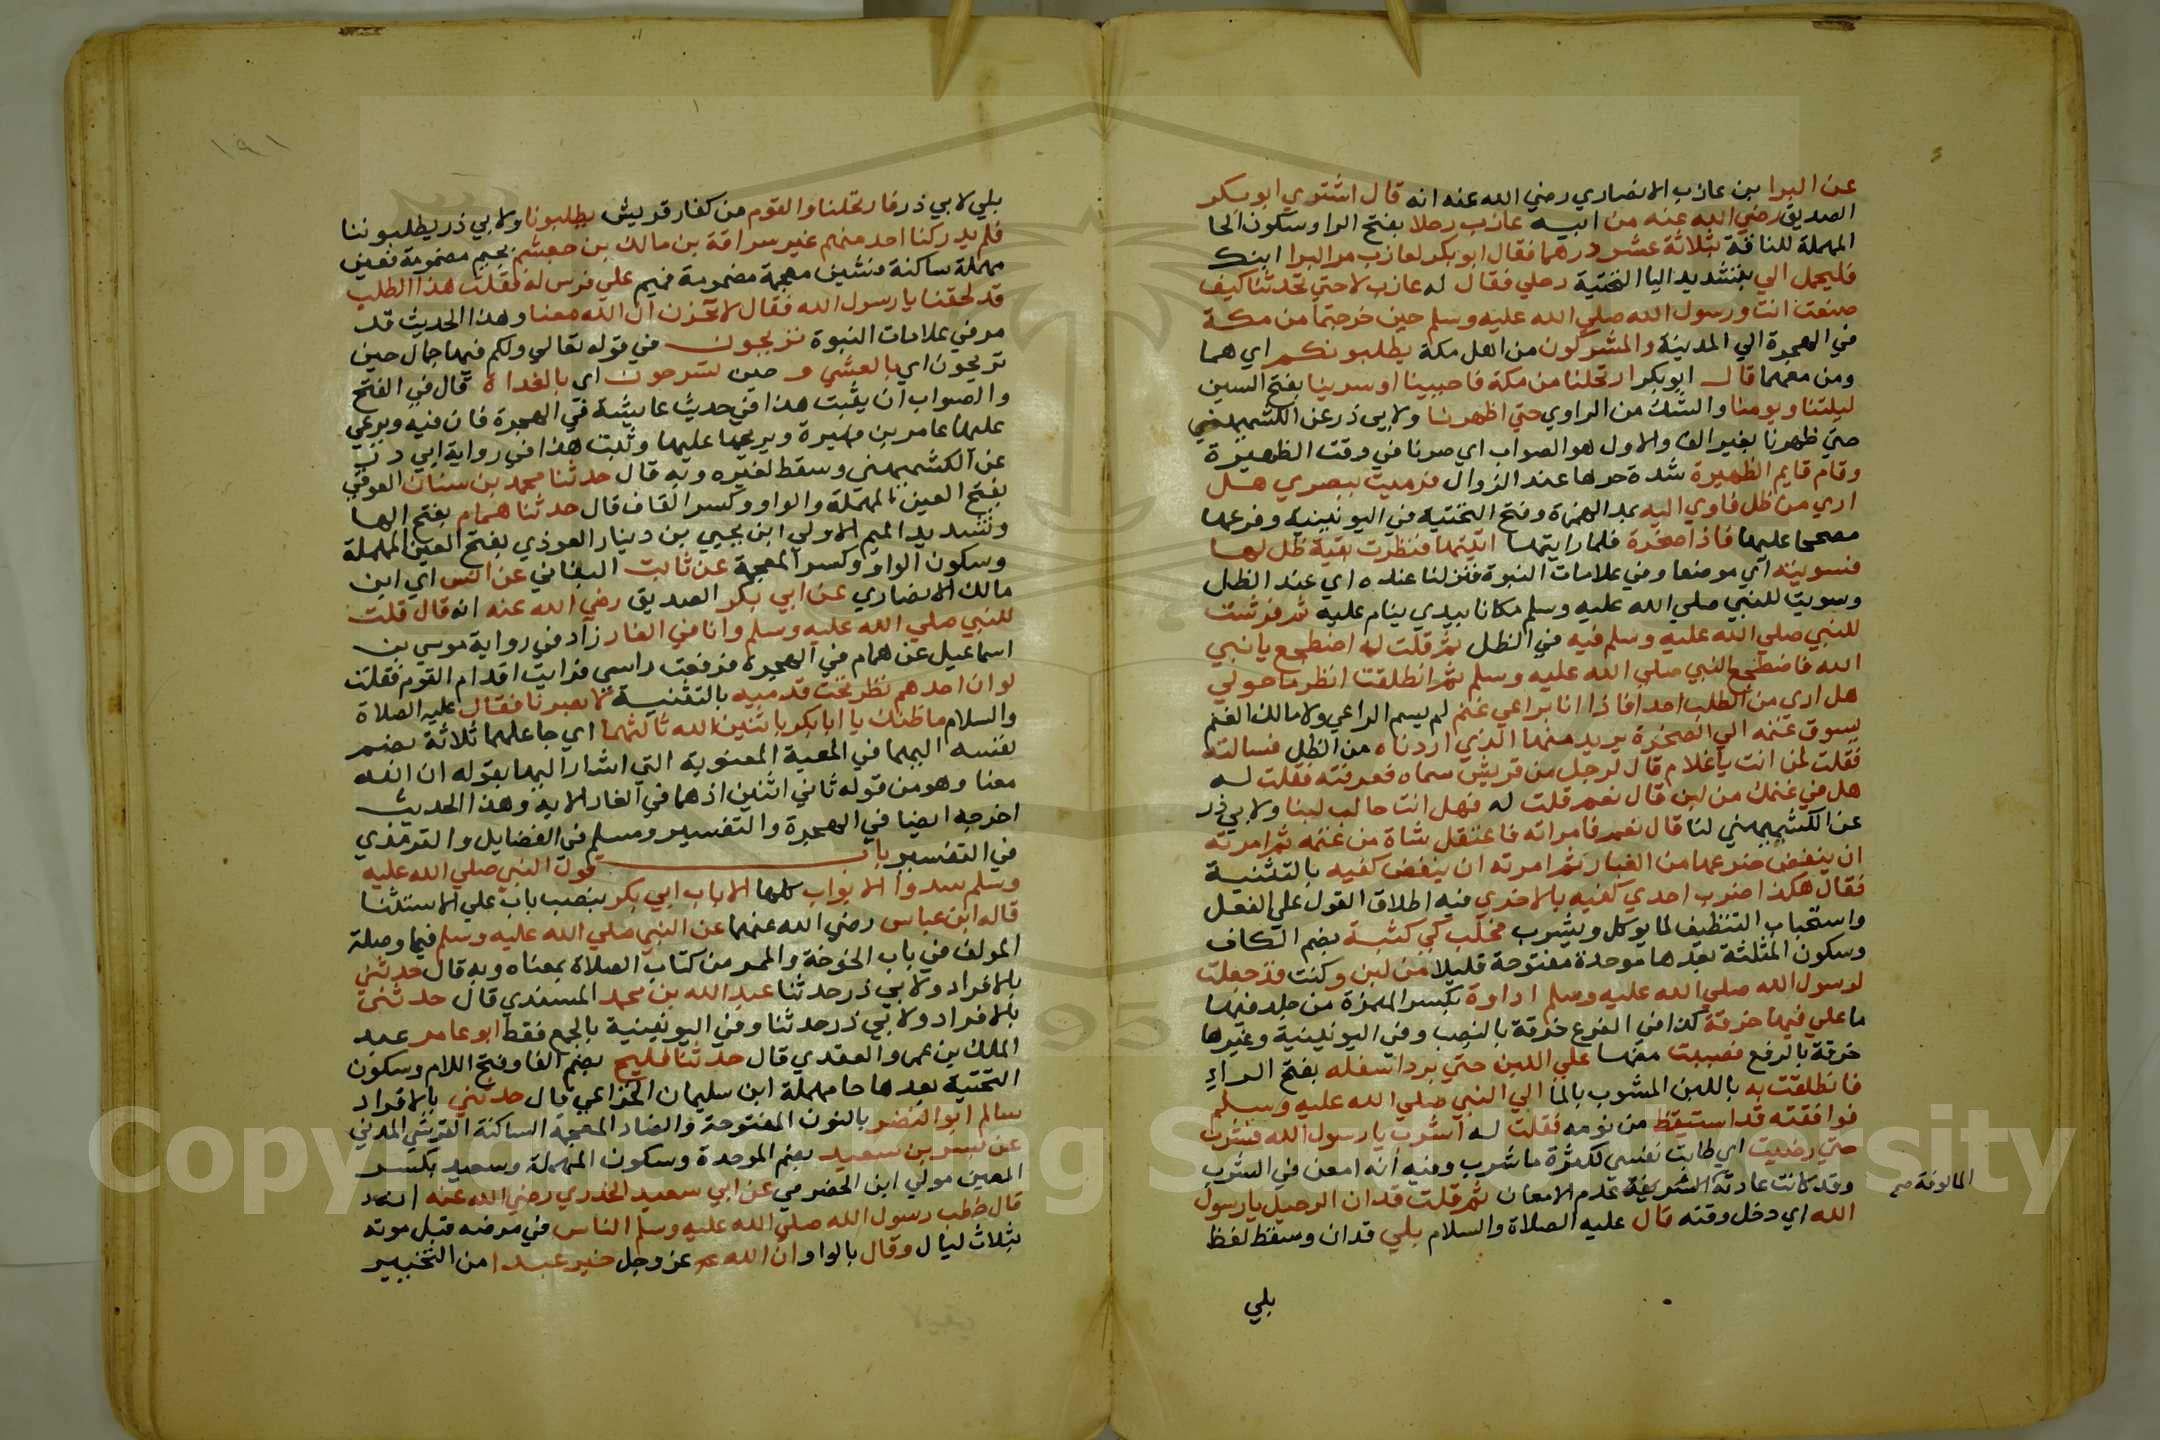 عن البرا بن عازب الانصاري رضي الله عنه انه قال اشتري ابو بكر
الصديق رضي الله عنه من ابيه عازب رحلا بفتح الرا وسكون الحا
المهملة للناقة بثلاثة عشر درهما فقال ابو بكر لعازب مر البرا ابنك
فليحمل الي بتشديد اليا التحتية رحلي فقال له عازب لا حتي تحدثنا كيف
صنعت انت ورسول الله صلي الله عليه وسلم حين خرجتما من مكة
في الهجرة الي المدينة والمشركون من اهل مكة يطلبونكم اي هما
ومن معهما قال ابو بكر ارتحلنا من مكة فاحيينا او سرينا بفتح السين
ليلتنا ويومنا والشك من الراوي حتي اظهرنا ولابي ذر عن الكشميهني
حتي ظهرنا بغير الف والاول هو الصواب اي صرنا في وقت الظهيرة
وقام قايم الظهيرة شدة حرها عند الزوال فرميت ببصري هل
اري من ظل فاوي اليه بمد الهمزة وفتح التحتية في اليونينية وفرعها
مصححا عليها فاذا صخرة فلما رايتها اتيتها فنظرت بقية ظل لها
فسويته اي موضعا وفي علامات النبوة فنزلنا عنده اي عند الظل
وسويت للنبي صلي الله عليه وسلم مكانا بيدي ينام عليه ثم فرشت
للنبي صلي الله عليه وسلم فيه في الظل ثم قلت له اضطجع يا نبي
الله فاضطجع النبي صلي الله عليه وسلم ثم انطلقت انظر ما حولي
هل اري من الطلب احدا فاذا انا براعي غنم لم يسم الراعي ولا مالك الغنم
يسوق غنمه الي الصخرة يريد منها الذي اردناه من الظل فسالته
فقلت لمن انت يا غلام قال لرجل من قريش سماه فعرفته فقلت له
هل في غنمك من لبن قال نعم قلت له فهل انت حالب لبنا ولابي ذر
عن الكشميهني لنا قال نعم فامرته فاعتقل شاة من غنمه ثم امرته
ان ينفض ضرعها من الغبار ثم امرته ان ينفض كفيه بالتثنية
فقال هكذا ضرب احدي كفيه بالاخري فيه اطلاق القول علي الفعل
واستحباب التنظيف لما يوكل ويشرب فحلب لي كثبة بضم الكاف
وسكون المثلثة بعدها موحدة مفتوحة قليلا من لبن وكنت قد جعلت
لرسول الله صلي الله عليه وسلم اداوة بكسر الهمزة من جلد فيها
ما علي فيها خرقة كذا في الفرع خرقة بالنصب وفي اليونينية وغيرها
خرقة بالرفع فصببت منها علي اللبن حتي برد اسفله بفتح الراء
فانطلقت به باللبن المشوب بالما الي النبي صلي الله عليه وسلم
فوافقته قد استيقظ من نومه فقلت له اشرب يا رسول الله فشرب
حتي رضيت اي طابت نفسي لكثرة ما شرب وفيه انه امعن في الشرب
وقد كانت عادته الشريفة عدم الامعان ثم قلت قد ان الرحيل يا رسول
المالوفة صح
الله اي دخل وقته قال عليه الصلاة والسلام بلي قد ان وسقط لفظ
بلي
١٩١
بلي لابي ذر فارتحلنا والقوم من كفار قريش يطلبونا ولابي ذر يطلبوننا
فلم يدركنا احد منهم غير سراقة بن مالك بن جعشم بجيم مضمومة فعين
مهملة ساكنة فشين معجمة مضمومة فميم علي فرس له فقلت هذا الطلب
قد لحقنا يا رسول الله فقال لا تحزن ان الله معنا وهذا الحديث قد
مر في علامات النبوة تريحون في قوله تعالي ولكم فيها جمال حين
تريحون اي بالعشي و حين تسرحون اي بالغداة قال في الفتح
والصواب ان يثبت هذا في حديث عايشة في الهجرة فان فيه ويرعي
عليها عامر بن فهيرة ويريحها عليها وثبت هذا في رواية ابي ذر
عن الكشميهني وسقط لغيره وبه قال حدثنا محمد بن سنان العوقي
بفتح العين المهملة والواو وكسر القاف قال حدثنا همام بفتح الها
وتشديد الميم الاولي ابن يحيي بن دينار العوذي بفتح العين المهملة
وسكون الواو وكسر المعجمة عن ثابت البناني عن انس اي ابن
مالك الانصاري عن ابي بكر الصديق رضي الله عنه انه قال قلت
للنبي صلي الله عليه وسلم وانا في الغار زاد في رواية موسي بن
اسماعيل عن همام في الهجرة فرفعت راسي فرايت اقدام القوم فقلت
لو ان احدهم نظر تحت قدميه بالتثنية لابصرنا فقال عليه الصلاة
والسلام ما ظنك يا ابا بكر باثنين الله ثالثهما اي جاعلهما ثلاثة بضم
نفسه اليهما في المعية المعنوية التي اشار اليها بقوله ان الله
معنا وهو من قوله ثاني اثنين اذ هما في الغار الاية وهذا الحديث
اخرجه ايضا في الهجرة والتفسير ومسلم في الفضايل والترمذي
في التفسير باب قول النبي صلي الله عليه
وسلم سدوا الابواب كلها الا باب ابي بكر بنصب باب علي الاستثنا
قاله ابن عباس رضي الله عنهما عن النبي صلي الله عليه وسلم فيما وصله
المولف في باب الخوخة والممر من كتاب الصلاة بمعناه وبه قال حدثني
بالافراد ولابي ذر حدثنا عبد الله بن محمد المسندي قال حدثني
بالافراد ولابي ذر حدثنا وفي اليونينية بالجمع فقط ابو عامر عبد
الملك بن عمرو العقدي قال حدثنا فليح بضم الفا وفتح اللام وسكون
التحتية بعدها حا مهملة ابن سليمان الخزاعي قال حدثني بالافراد
سالم ابو النضر بالنون المفتوحة والضاد المعجمة الساكنة القرشي المدني
عن بسر بن سعيد بضم الموحدة وسكون المهملة وسعيد بكسر
العين مولي ابن الحضرمي عن ابي سعيد الخدري رضي الله عنه انه
قال خطب رسول الله صلي الله عليه وسلم الناس في مرضه قبل موته
بثلاث ليال وقال بالواو ان الله عز وجل خير عبدا من التخيير
Copyright © King Saud University